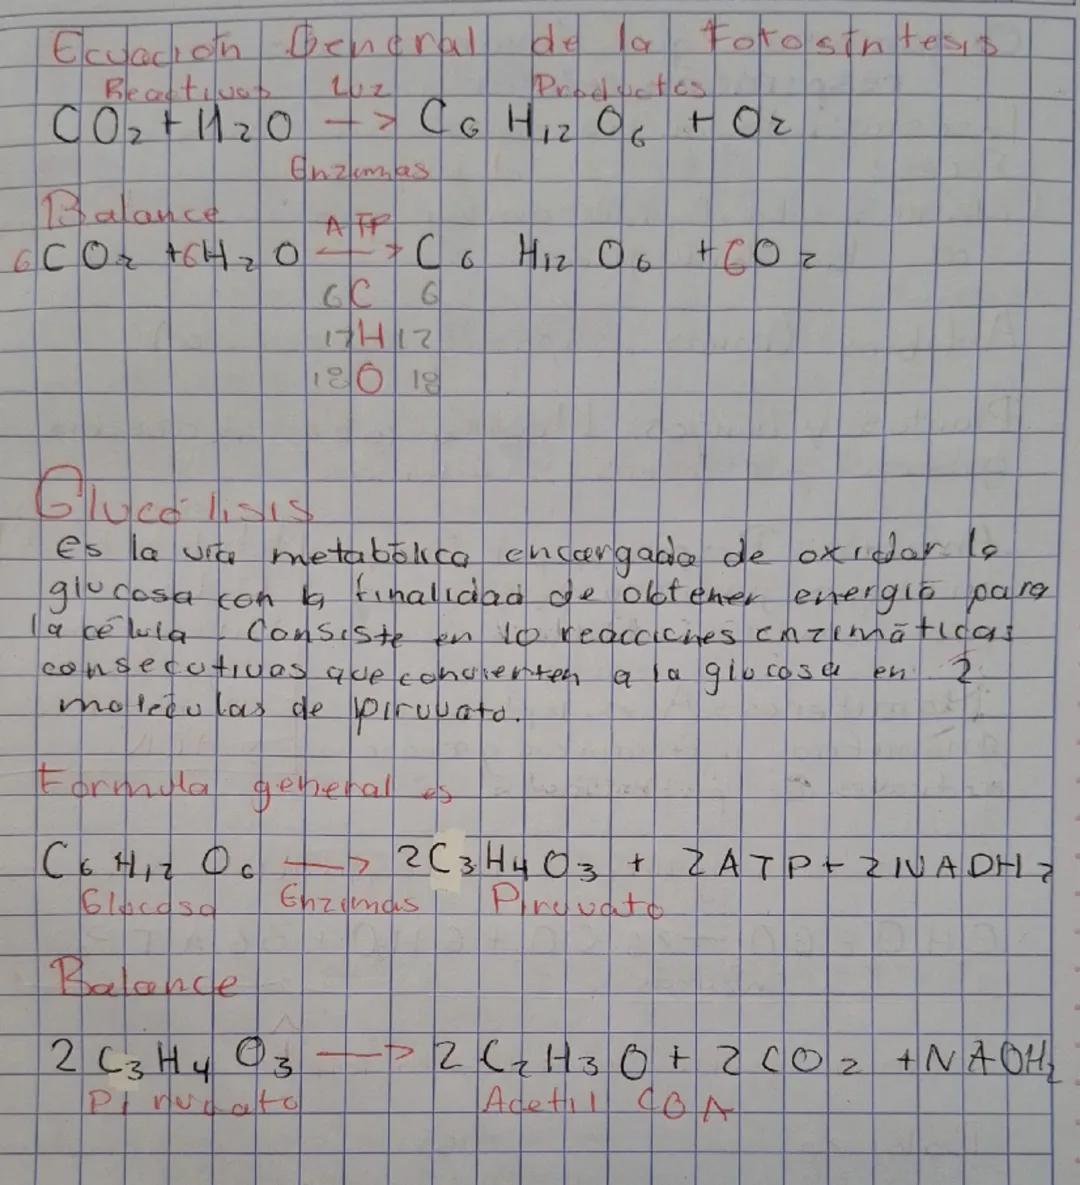 Ecuación General de la Fotosíntesis
Reactivos Luz Productos
CO₂ + H₂O -> C₆ H₁₂ O₆ + O₂
Enzimas
Balance
ATP
6CO₂ +6H₂O -> C₆ H₁₂ O₆ +6O₂
6C 6
12H 12
18O 18
Glucólisis
es la vía metabólica encargada de oxidar la
glucosa con la finalidad de obtener energía para
la célula. Consiste en 10 reacciones enzimáticas
consecutivas que convierten a la glucosa en 2
moléculas de piruvato.
Formula general es
C₆ H₁₂ O₆ -> 2C₃H₄O₃ + 2ATP + 2NADH₂
Glucosa Enzimas Piruvato
Balance
2 C₃H₄ O₃ -> 2 C₂H₃O + 2 CO₂ + NADH₂
Piruvato Acetil COA